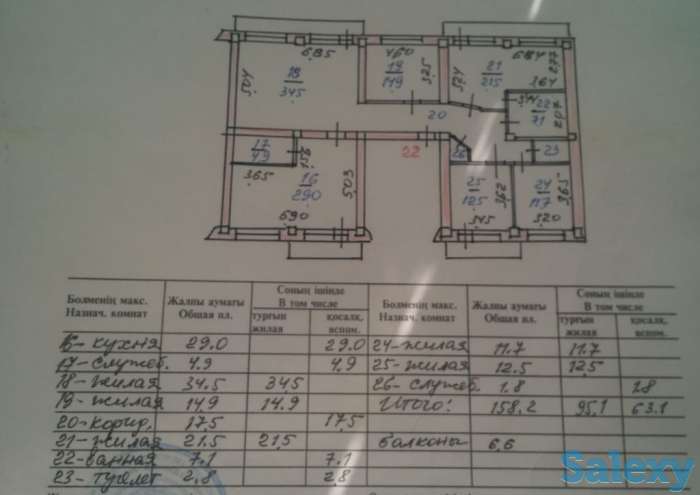 685
460
684
277
504
18
34.5
19
14.9
325
21
21.5
524
264
344
22
7.1
207
20
17
4.9
156
22
26
23
365
16
29.0
503
25
12.5
362
24
11.7
365
690
345
320
Бөлменің мақс. Жалпы аумағы Соның ішінде Бөлменің мақс. Жалпы аумағы Соның ішінде
Назнач. комнат Общая пл. В том числе Назнач. комнат Общая пл. В том числе
тұрғын қосалқ. тұрғын қосалқ.
жилая вспом. жилая вспом.
16- кухня 29.0 29.0 24- жилая 11.7 11.7
17- служеб. 4.9 4.9 25- жилая 12.5 12.5
18- жилая 34.5 34.5 26- служеб. 1.8 1.8
19- жилая 14.9 14.9 Итого: 158.2 95.1 63.1
20- корид. 17.5 17.5
21- жилая 21.5 21.5 балконы 6.6
22- ванная 7.1 7.1
23- туалет 2.8 2.8
Salexy